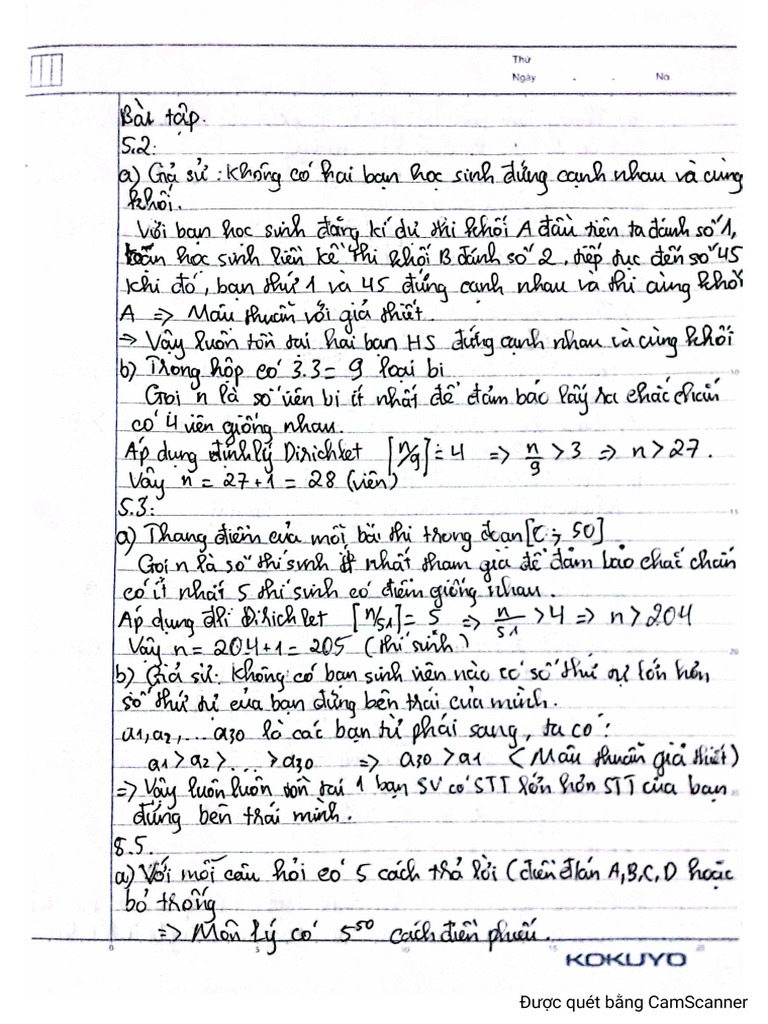 Thứ
Ngày . . No
Bài tập.
5.2:
a) Giả sử : Không có hai bạn học sinh đứng cạnh nhau và cùng
khối.
Với bạn học sinh đăng kí dự thi khối A đầu tiên ta đánh số 1,
học sinh liền kề thi khối B đánh số 2, tiếp tục đến số 45
khi đó, bạn thứ 1 và 45 đứng cạnh nhau và thi cùng khối
A => Mâu thuẫn với giả thiết.
=> Vậy luôn tồn tại hai bạn HS đứng cạnh nhau và cùng khối
b) Trong hộp có 3.3 = 9 loại bi
Gọi n là số viên bi ít nhất để đảm bảo lấy ra chắc chắn
có 4 viên giống nhau.
Áp dụng định lý Dirichlet [n/9] = 4 => n/9 > 3 => n > 27.
Vậy n = 27+1 = 28 (viên)
5.3:
a) Thang điểm của mỗi bài thi trong đoạn [0; 50]
Gọi n là số thí sinh ít nhất tham gia để đảm bảo chắc chắn
có ít nhất 5 thí sinh có điểm giống nhau.
Áp dụng đlí Dirichlet [n/51] = 5 => n/51 > 4 => n > 204
Vậy n = 204+1 = 205 (thí sinh)
b) Giả sử: Không có bạn sinh viên nào có số thứ tự lớn hơn
số thứ tự của bạn đứng bên trái của mình.
a1, a2, ... a30 là các bạn từ phải sang, ta có :
a1 > a2 > ... > a30 => a30 > a1 (Mâu thuẫn giả thiết)
=> Vậy luôn luôn tồn tại 1 bạn SV có STT lớn hơn STT của bạn
đứng bên trái mình.
8.5.
a) Với mỗi câu hỏi có 5 cách trả lời (điền đ/án A, B, C, D hoặc
bỏ trống
=> Môn lý có 5⁵⁰ cách điền phiếu.
KOKUYO
Được quét bằng CamScanner